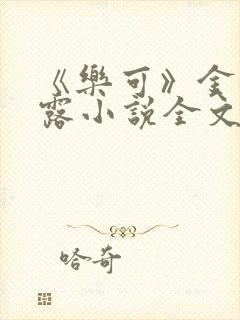 《樂可》金
露小說全文
哈奇